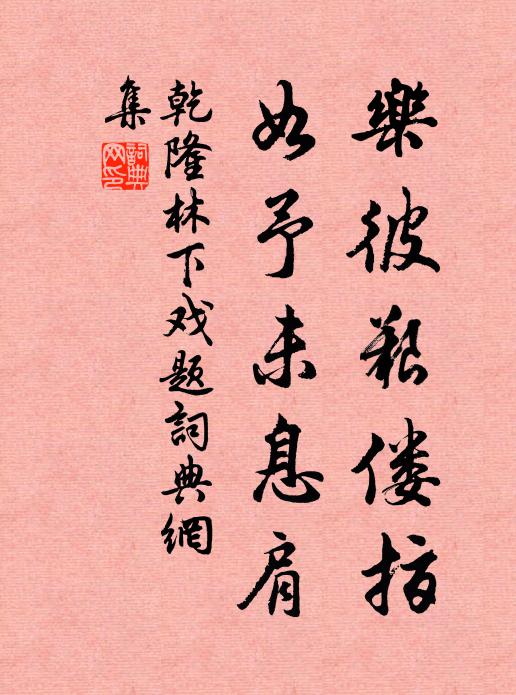 樂彼艱僂指
如予未息肩
乾隆林下戏題詞典網
集
詞典
网印